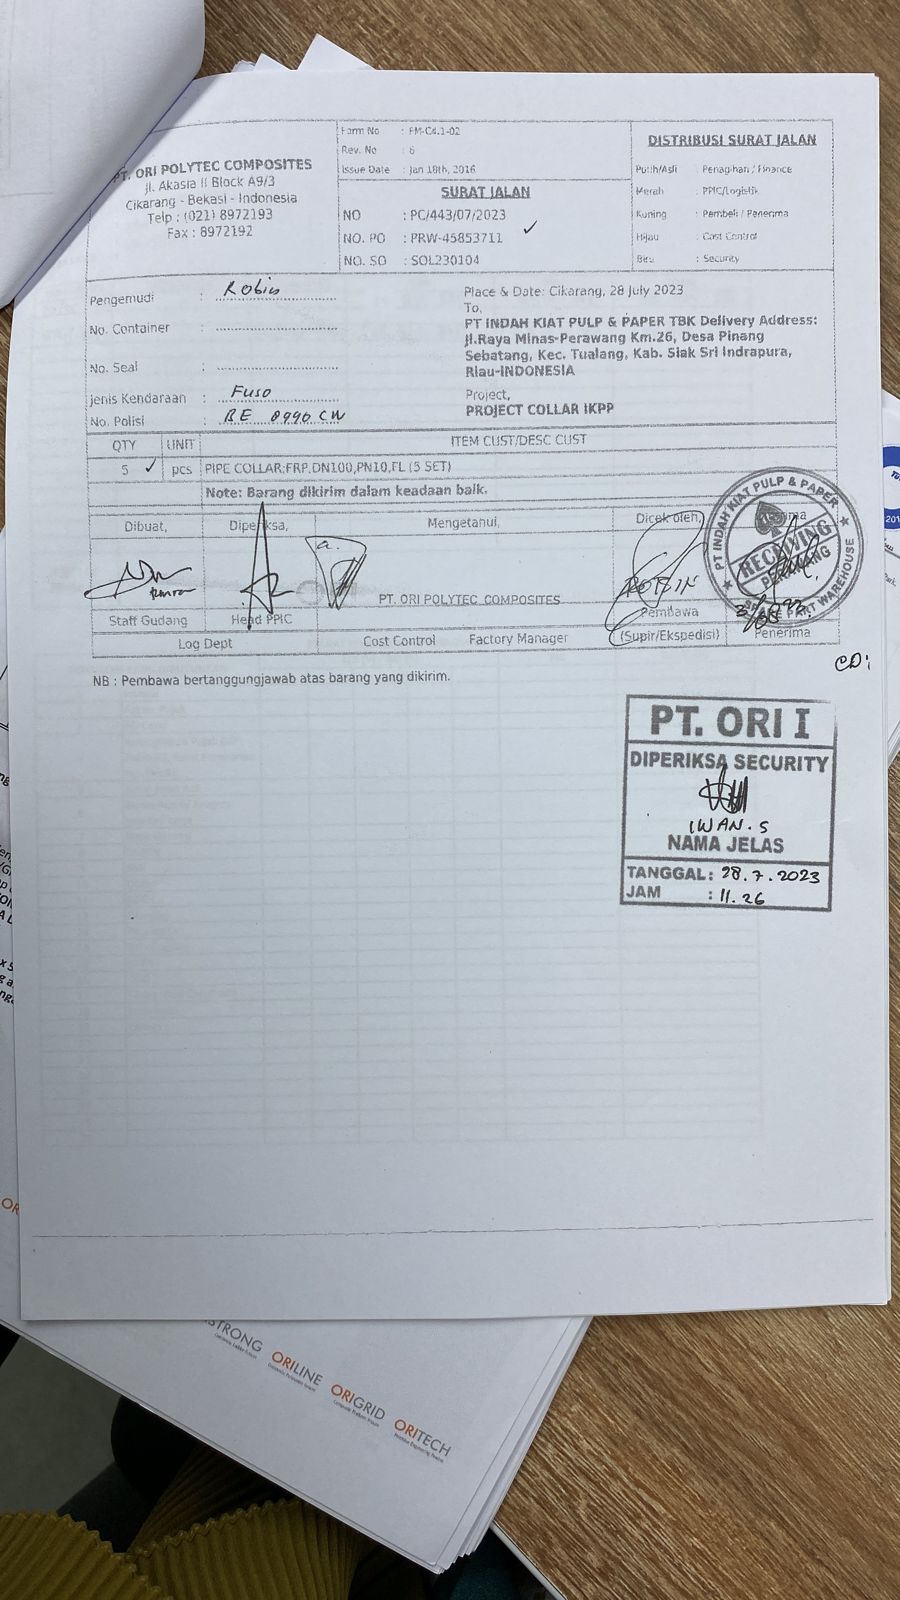 PT. ORI POLYTEC COMPOSITES
Jl. Akasia II Block A9/3
Cikarang - Bekasi - Indonesia
Telp : (021) 8972193
Fax : 8972192
Form No : FM-C4.1-02
Rev. No : 6
Issue Date : Jan 18th, 2016
SURAT JALAN
NO : PC/443/07/2023
NO. PO : PRW-45853711
NO. SO : SOL230104
DISTRIBUSI SURAT JALAN
Putih/Asli : Penagihan / Finance
Merah : PPIC/Logistik
Kuning : Pembeli / Penerima
Hijau : Cost Control
Biru : Security
Pengemudi : Robin
No. Container :
No. Seal :
Jenis Kendaraan : Fuso
No. Polisi : BE 8990 CW
Place & Date: Cikarang, 28 July 2023
To,
PT INDAH KIAT PULP & PAPER TBK Delivery Address:
Jl.Raya Minas-Perawang Km.26, Desa Pinang
Sebatang, Kec. Tualang, Kab. Siak Sri Indrapura,
Riau-INDONESIA
Project,
PROJECT COLLAR IKPP
QTY UNIT ITEM CUST/DESC CUST
5 pcs PIPE COLLAR:FRP,DN100,PN10,FL (5 SET)
Note: Barang dikirim dalam keadaan baik.
Dibuat, Diperiksa, Mengetahui, Dicek oleh,
PT INDAH KIAT PULP & PAPER
RECEIVING
PERAWANG
SPARE PART WAREHOUSE
ROBIN
PT. ORI POLYTEC COMPOSITES
Pembawa
Staff Gudang Head PPIC
Cost Control Factory Manager (Supir/Ekspedisi) Penerima
Log Dept
NB : Pembawa bertanggungjawab atas barang yang dikirim.
CD:
PT. ORI I
DIPERIKSA SECURITY
IWAN.S
NAMA JELAS
TANGGAL : 28.7.2023
JAM : 11.26
STRONG
ORILINE
ORIGRID
ORITECH